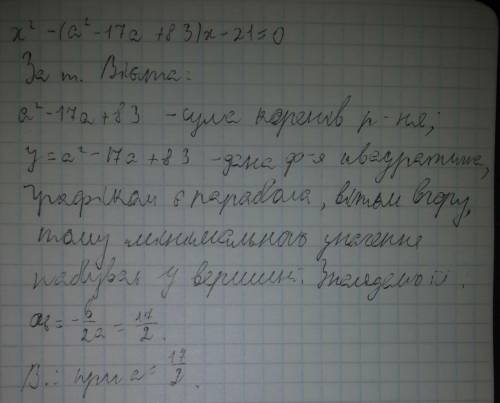 x² - (a² - 17a + 83)x - 21 = 0
За т. Вієта:
a² - 17a + 83 - сума коренів р-ня;
y = a² - 17a + 83 - дана ф-я квадратична,
графіком є парабола, вітки вгору,
тому мінімального значення
набуває у вершині. Знайдемо її.
aв = -b/2a = 17/2.
В.: при a = 17/2.